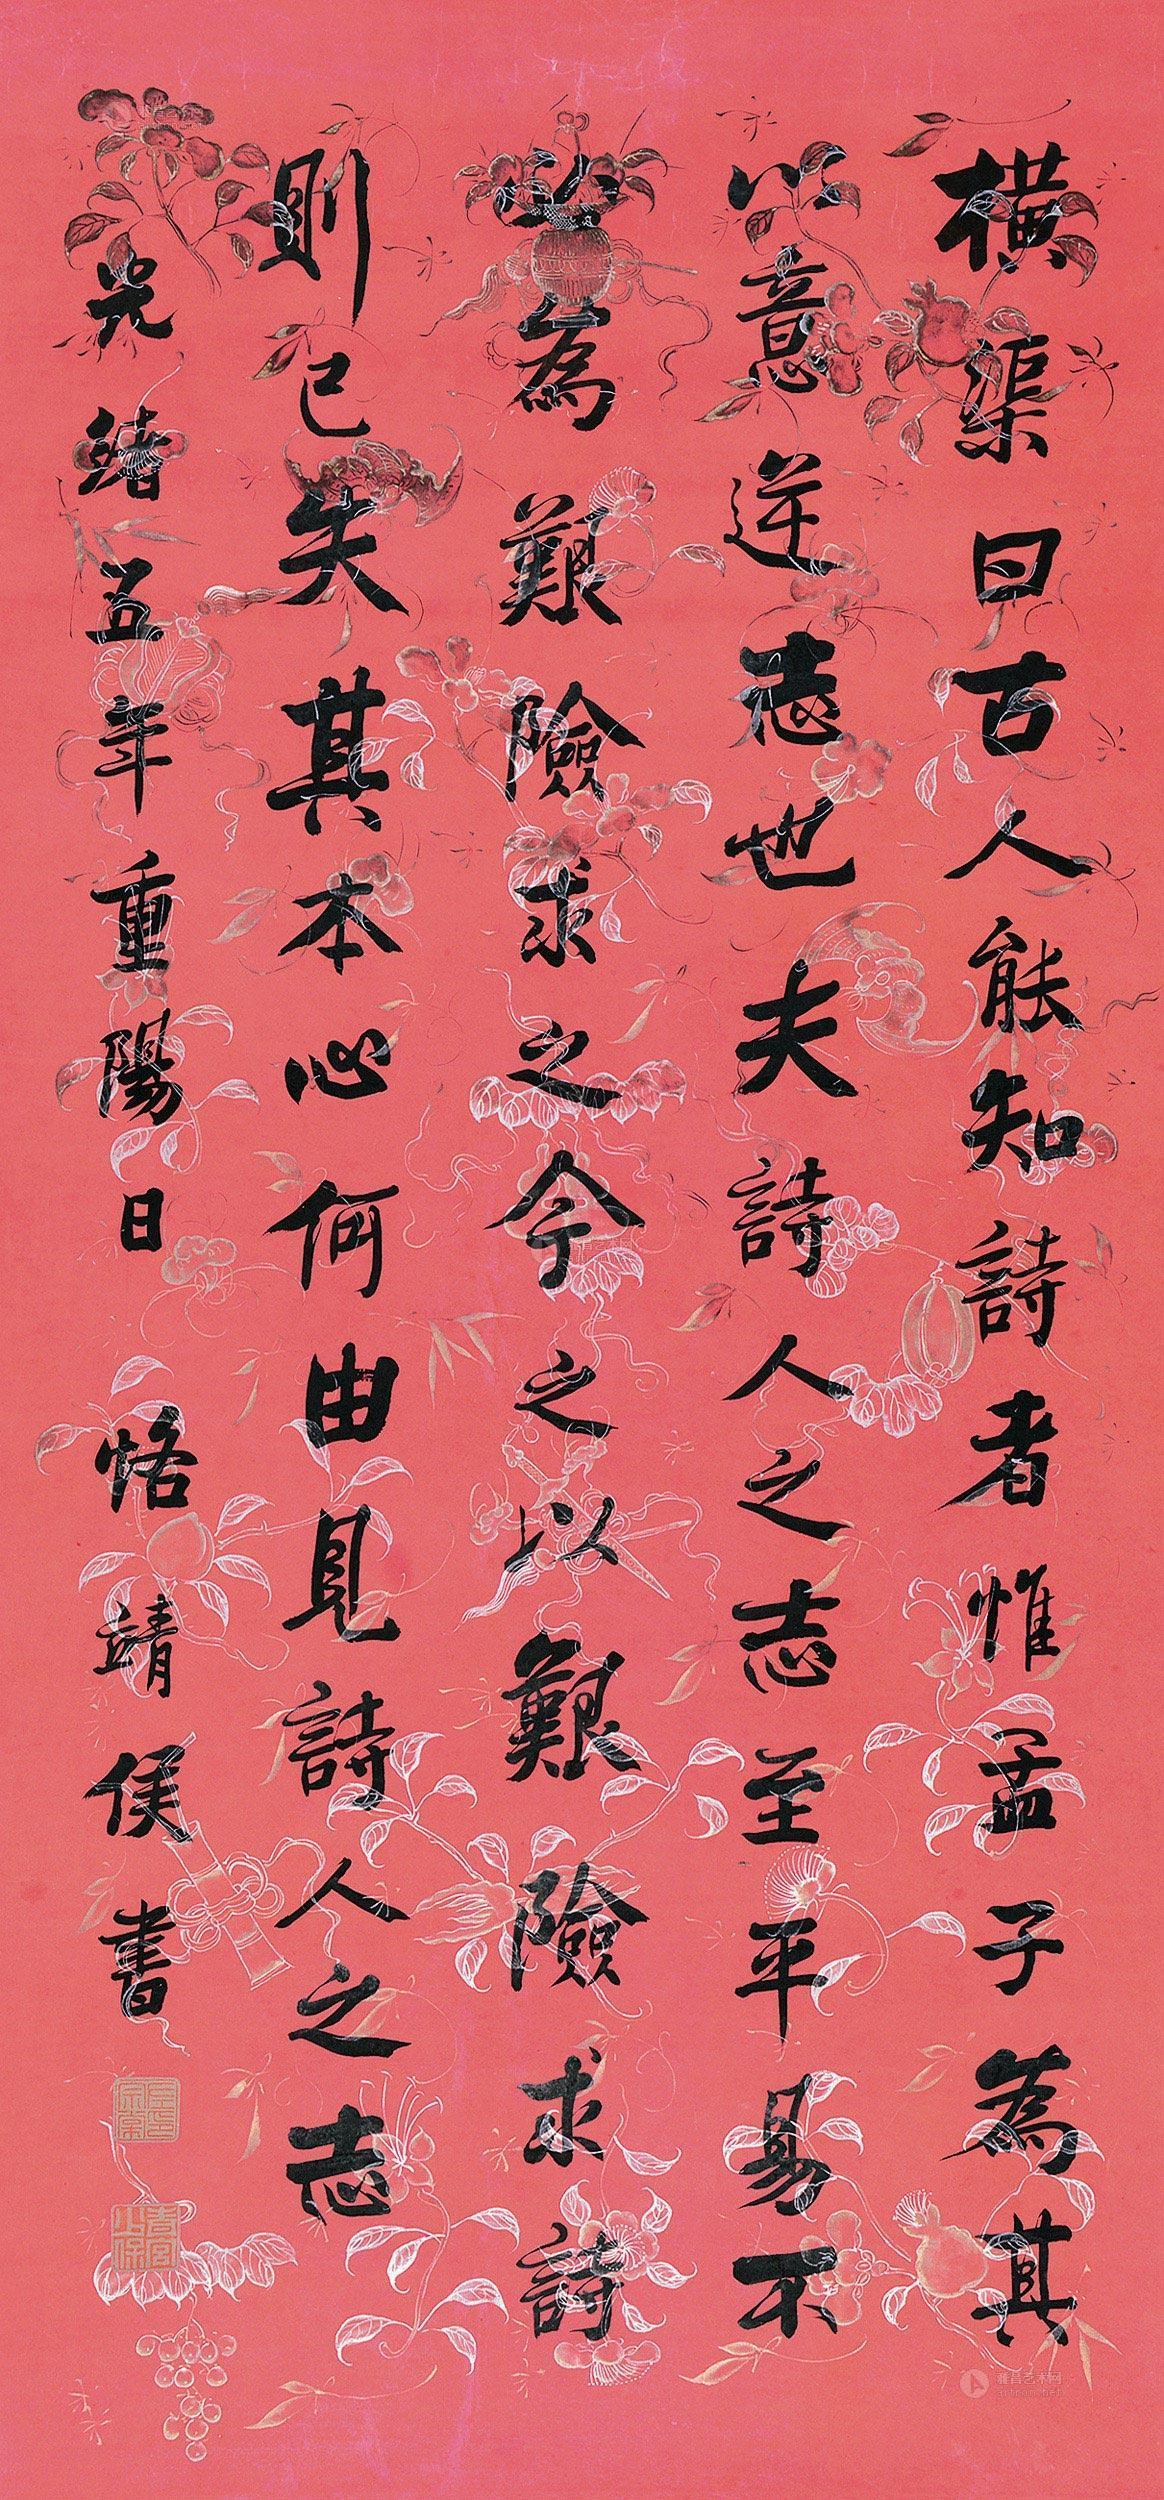 橫渠曰古人能知詩者惟孟子為其
以意逆志也夫詩人之志至平易不
必為艱險求之今之以艱險求詩
則已失其本心何由見詩人之志
光緒五年重陽日 恪靖侯書
雅昌艺术网
artron.net